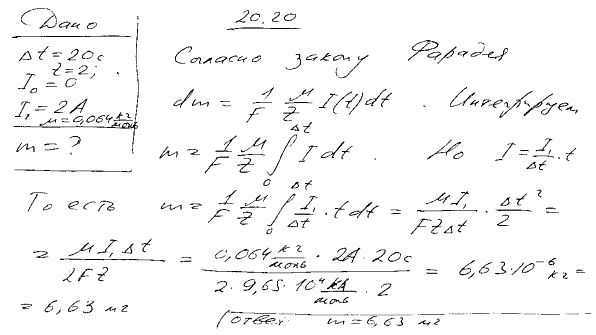 20.20
Дано
Δt = 20с
z = 2;
I₀ = 0
I₁ = 2А
μ = 0,064 кг/моль
m = ?
Согласно закону Фарадея
dm = 1/F μ/Z I(t)dt . Интегрируем
m = 1/F μ/Z ∫₀^Δt I dt . Но I = I₁/Δt · t
То есть m = 1/F μ/Z ∫₀^Δt I₁/Δt · t dt = μI₁/FZΔt · Δt²/2 =
= μI₁Δt/2FZ = 0,064 кг/моль · 2А · 20с / 2 · 9,65 · 10⁴ Кл/моль · 2 = 6,63 · 10⁻⁶ кг =
= 6,63 мг
Ответ: m = 6,63 мг